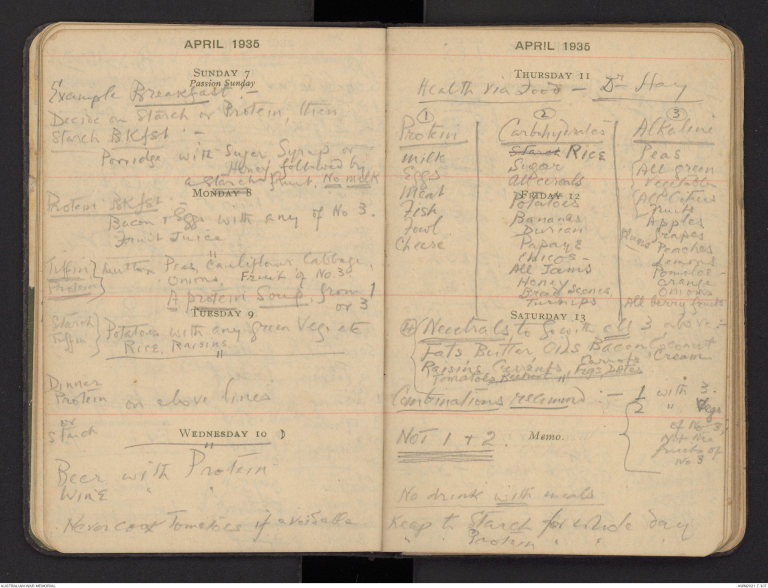 APRIL 1935
SUNDAY 7
Passion Sunday
Example Breakfast :-
Decide on Starch or Protein, then
Starch Bkfst :-
Porridge with Sugar Syrup or
Honey followed by
a starch fruit. No milk
MONDAY 8
Protein Bkfst :-
Bacon & Eggs with any of No 3.
Fruit Juice "
Tiffin Protein } Mutton Peas, Cauliflour Cabbage,
Onions. Fruit of No 3.
A protein Soup, from 1
or 3
TUESDAY 9
Starch Tiffin } Potatoes with any green Veg etc
Rice, Raisins "
Dinner
Protein on above lines
or
Starch
WEDNESDAY 10
Beer with Protein
Wine " "
Never cook Tomatoes if avoidable
APRIL 1935
THURSDAY 11
Health via Food — Dr Hay
1 2 3
Protein
Milk
Eggs
Meat
Fish
Fowl
Cheese
Carbohydrates
Starch RICE
Sugar
All cereals
FRIDAY 12
Potatoes
Bananas
Durian
Papaye
Chicos -
All Jams
Honey
Turnips
Alkaline
Peas
All green
vegetables
All Citrus
Fruits
Apples
Grapes
Peaches
Lemons
Pomeloe -
Orange
Onions
All berry fruits
SATURDAY 13
4 Neutrals to go with all 3 above :-
Fats Butter Oils Bacon Coconut
Raisins Currants Carrots Cream
Tomatoes Figs Dates
Combinations recommd :- 1 with 3.
2 " Vegs
of No 3,
Not the
fruits of
No 3
NOT 1 + 2.
Memo.
No drink with meals
Keep to Starch for whole day
" " Protein " " "
AUSTRALIAN WAR MEMORIAL